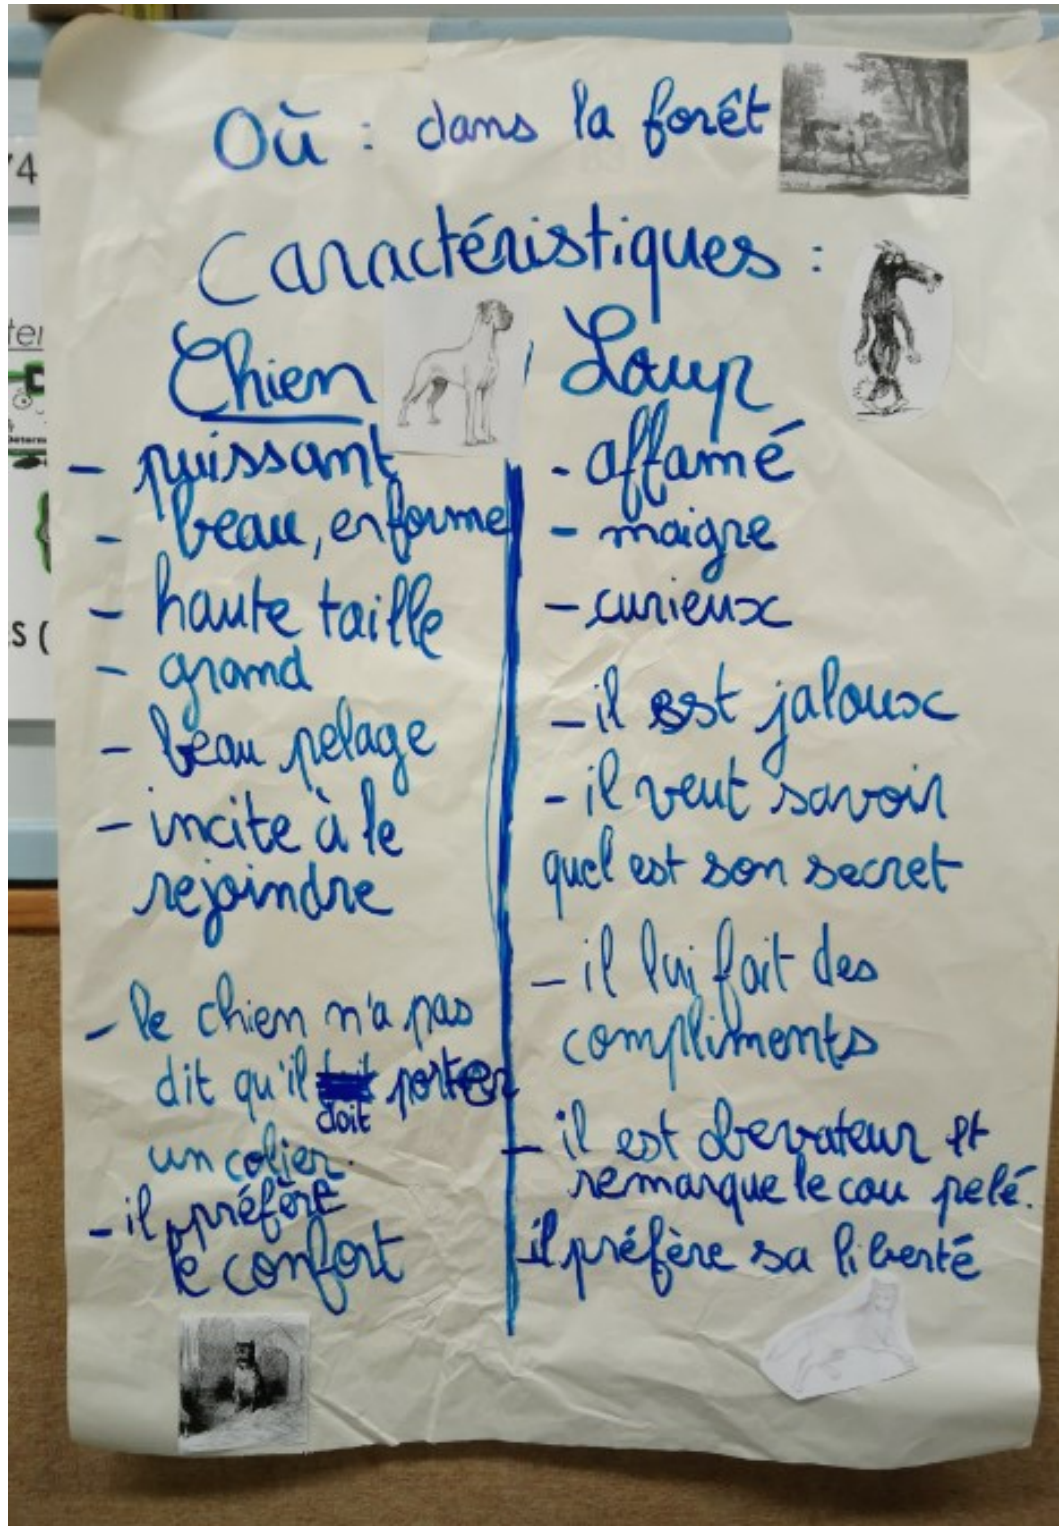 Où : dans la forêt
Caractéristiques :
Chien
- puissant
- beau, en forme
- haute taille
- grand
- beau pelage
- incite à le
rejoindre
- le chien n'a pas
dit qu'il doit porter
un colier.
- il préfère
le confort
Loup
- affamé
- maigre
- curieux
- il est jaloux
- il veut savoir
quel est son secret
- il lui fait des
compliments
- il est obervateur et
remarque le cou pelé.
il préfère sa liberté
74
ter
S (